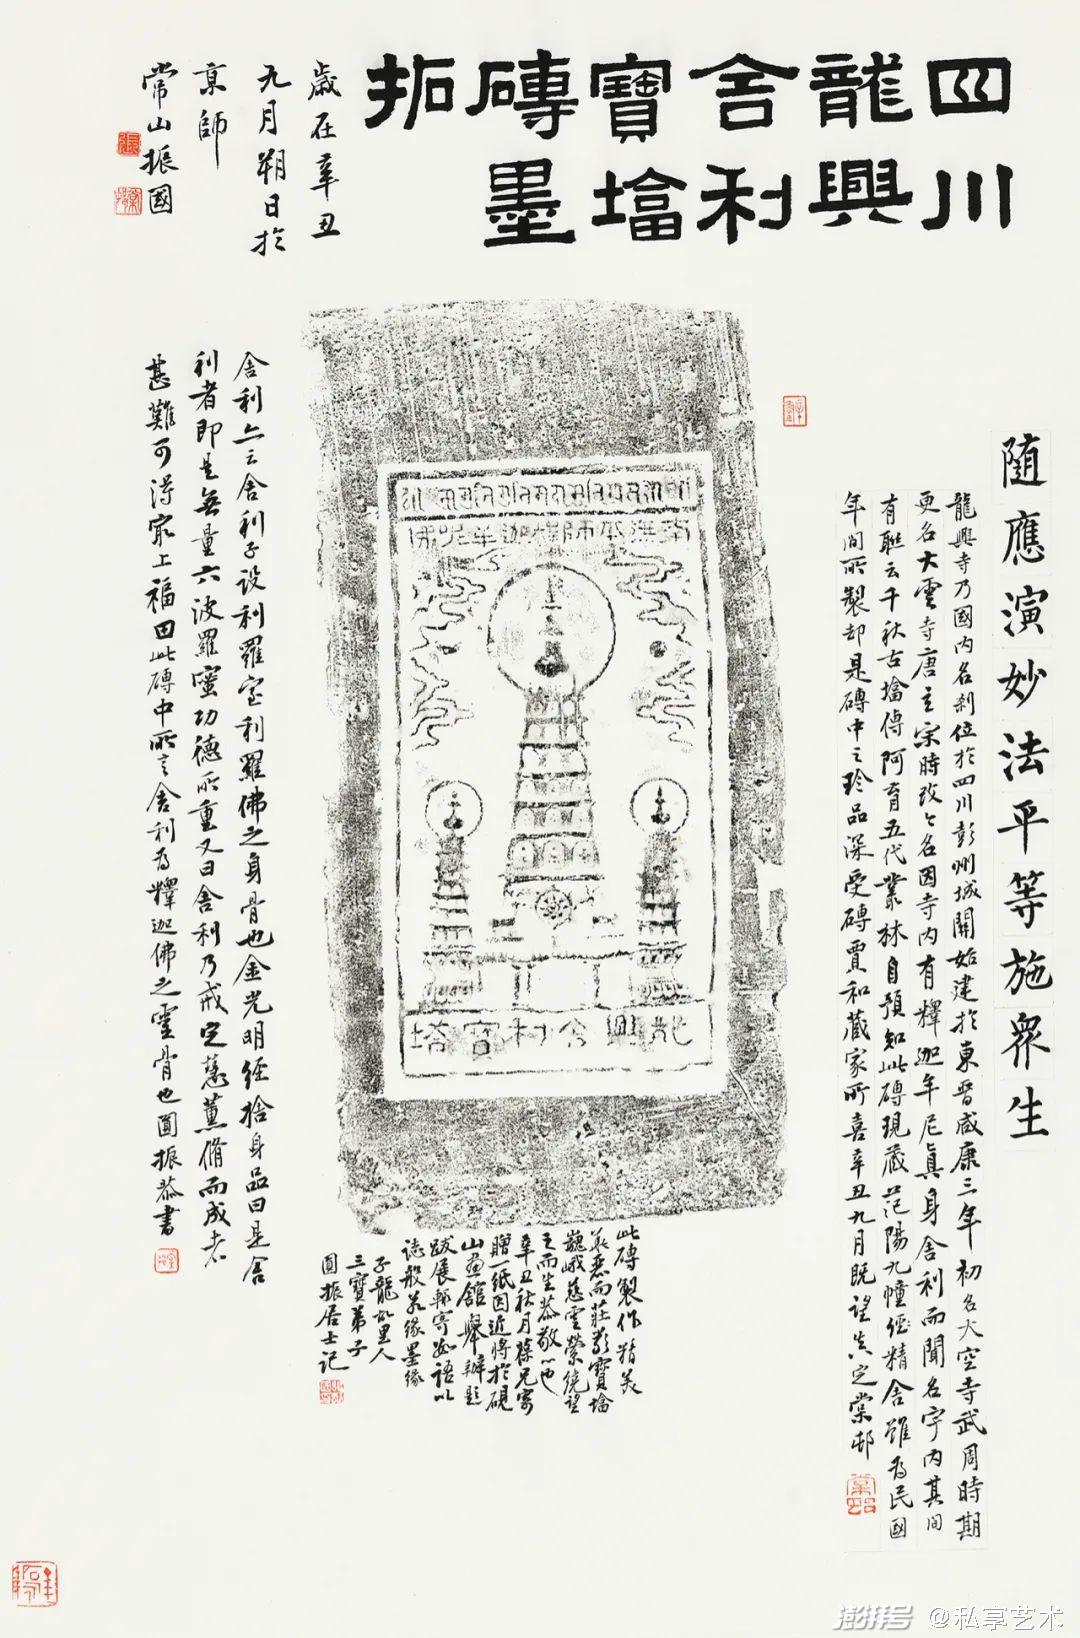 四川
龍興
舍利
寶塔
磚墨
拓
歲在辛丑
九月朔日於
京師
常山振國
隨應演妙法平等施眾生
龍興寺乃國內名刹位於四川彭州城關始建於東晉咸康三年初名大空寺武周時期
更名大雲寺唐玄宗時改今名因寺內有釋迦牟尼真身舍利而聞名宇內其間
有聯云千秋古塔傳阿育五代叢林自預知此磚現藏范陽九幢經精舍雖為民國
年間所製却是磚中之珍品深受磚賈和藏家所喜辛丑九月既望真定棠邨
南無本師釋迦牟尼佛
龍興舍利寶塔
舍利亦云舍利子設利羅室利羅佛之身骨也金光明經捨身品曰是舍
利者即是無量六波羅蜜功德所重又曰舍利乃戒定慧薰脩而成者
甚難可得最上福田此磚中所言舍利為釋迦佛之靈骨也圓振恭書
此磚製作精美
而莊嚴寶塔
巍峨慈雲縈繞望
之而生恭敬心也
辛丑秋月葆兄寄
贈一紙因近將於硯
山畫館舉辦題
跋展輒寄數語以
誌般若緣墨緣
子龍故里人
三寶弟子
圓振居士記
澎湃号 @私享艺术